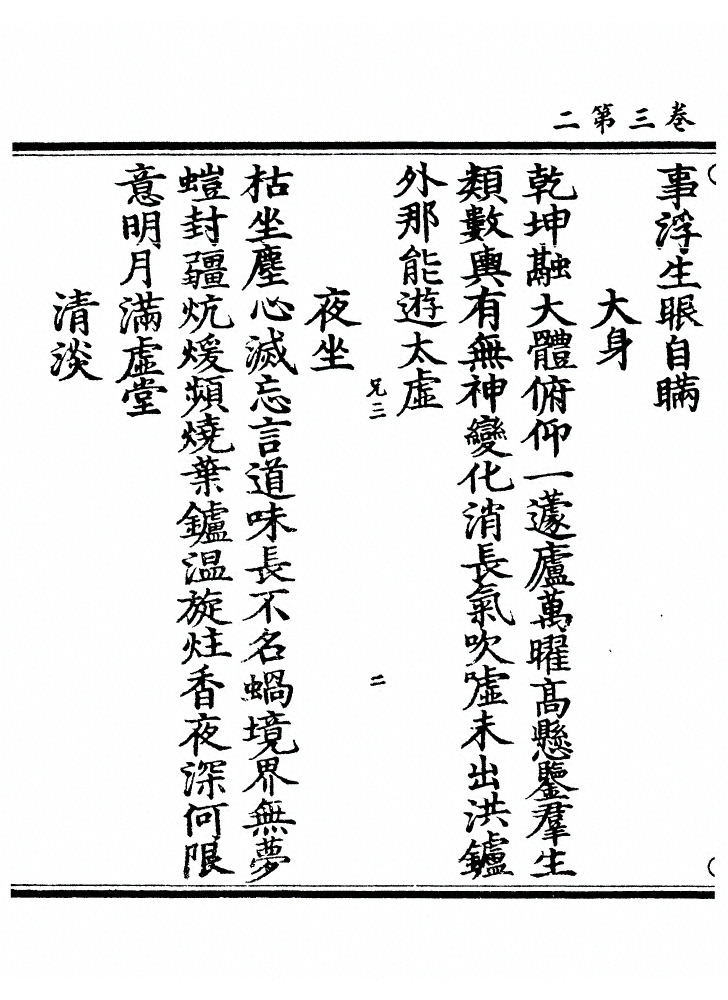 卷三第二
事浮生眼自瞞
大身
乾坤融大體俯仰一蘧廬萬曜高懸鑒羣生
類數輿有無神變化消長氣吹噓未出洪鑪
外那能遊太虛
兄三
二
夜坐
枯坐塵心滅忘言道味長不名蝸境界無夢
螘封疆炕煖頻燒葉鑪温旋炷香夜深何限
意明月滿虛堂
清淡